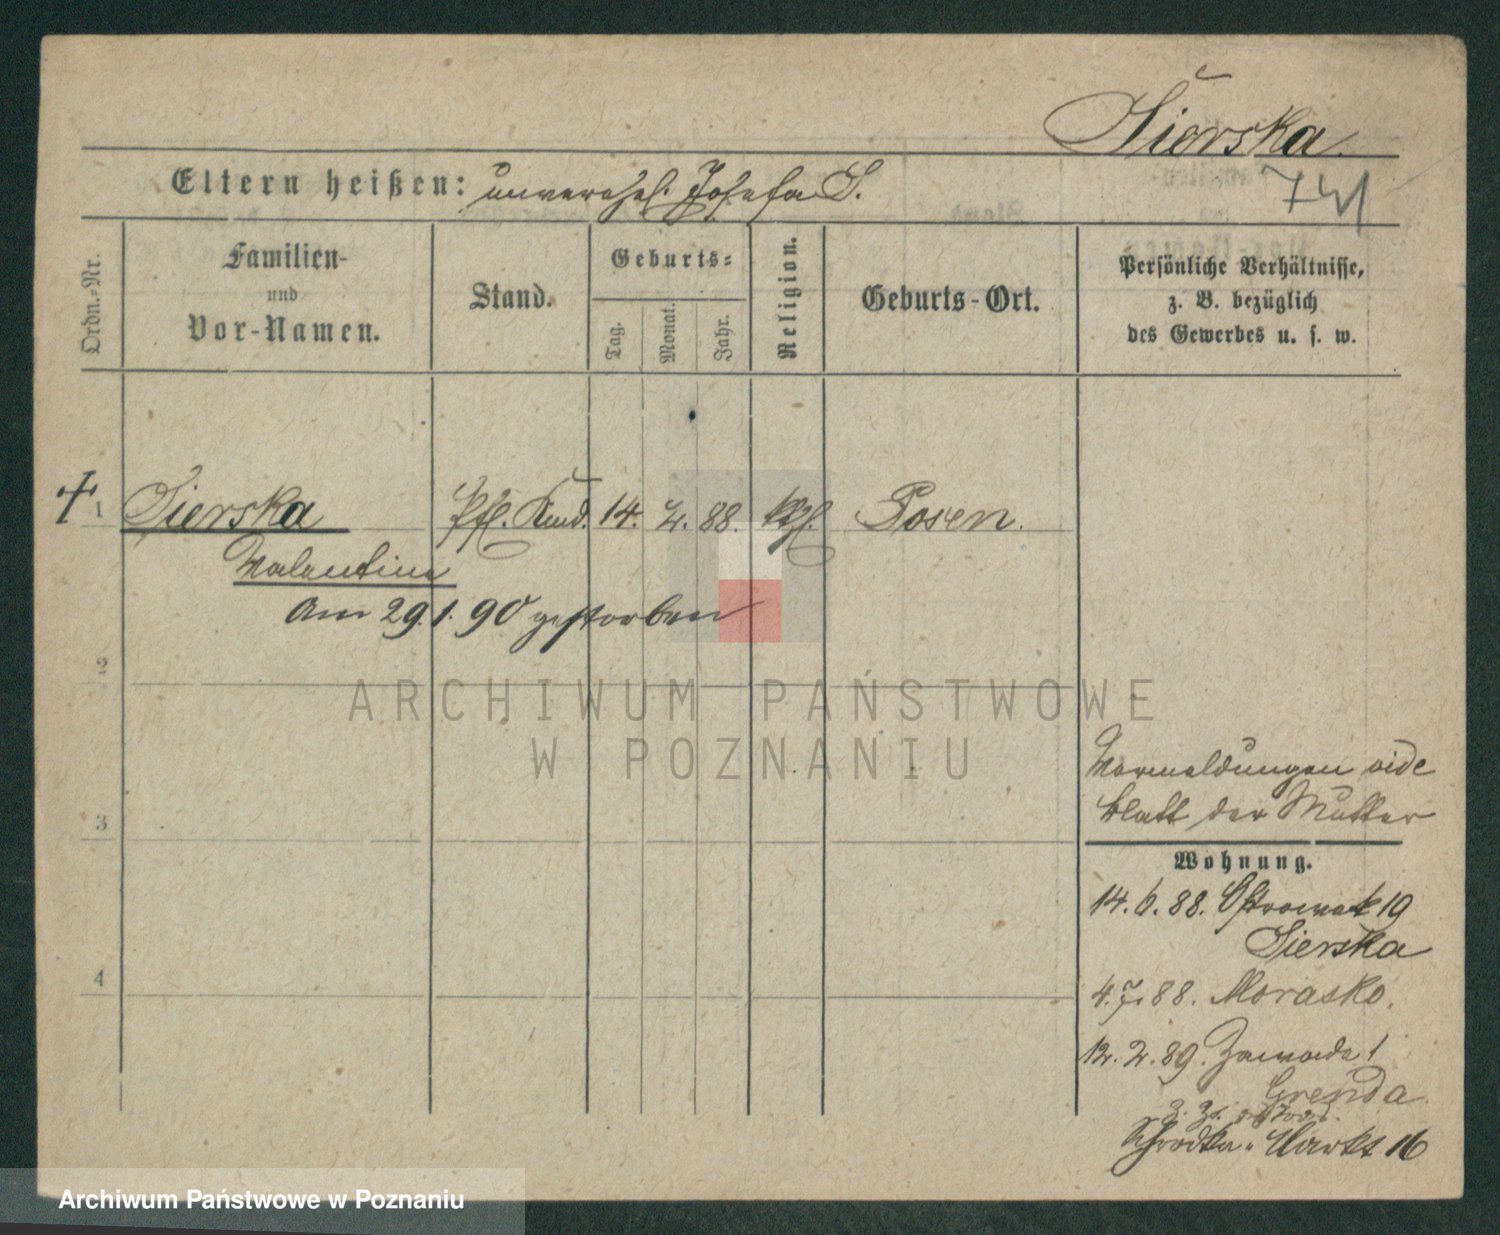 Sierska
Eltern heißen: unverehel. Josefa S.
741
Ordn.-Nr.
Familien-
und
Vor-Namen.
Stand.
Geburts-
Tag.
Monat.
Jahr.
Religion.
Geburts-Ort.
Persönliche Verhältnisse,
z. B. bezüglich
des Gewerbes u. s. w.
1 Sierska Pfl. Kind. 14. 2. 88. kth. Posen.
Valentina
Am 29.1.90 gestorben
2
ARCHIWUM PAŃSTWOWE
W POZNANIU
Vermeldungen vide
3
Blatt der Mutter
Wohnung.
14.6.88. Ostrowek 19
Sierska
4
4.7.88. Morasko.
12.2.89. Zawade 1
Grenda
Schrodka-Markt 16
Archiwum Państwowe w Poznaniu